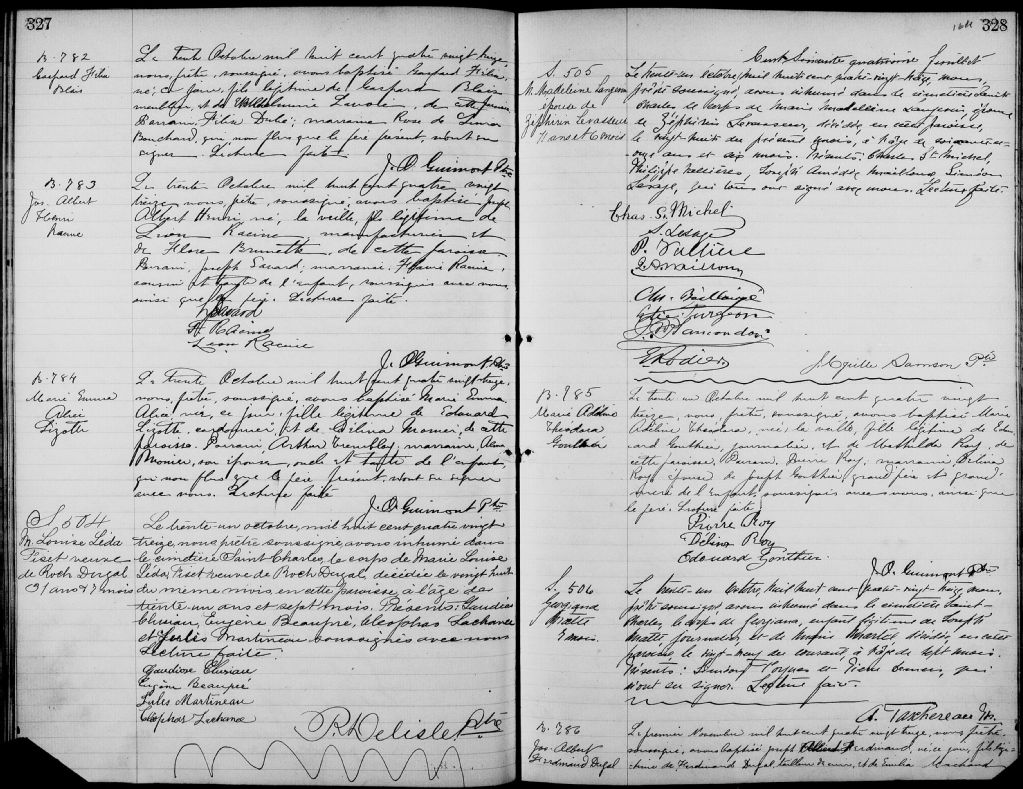 327
B. 782
Gaspard Félix
Blais
Le trente Octobre mil huit cent quatre vingt treize,
nous, prêtre, soussigné, avons baptisé Gaspard Félix,
né, ce jour, fils légitime de Gaspard Blais
meublier, et de Lavoie, de cette paroisse
Parrain, Félix Dubé; marraine Rose de Lima
Bouchard, qui non plus que le père présent, n'ont su
signer. Lecture faite.
J. O. Guimont Ptre
B. 783
Jos. Albert
Henri
Racine
Le trente Octobre mil huit cent quatre vingt
treize nous, prêtre, soussigné, avons baptisé Joseph
Albert Henri, né, la veille, fils légitime de
Léon Racine, manufacturier et
de Flore Brunette, de cette paroisse
Parrain, Joseph Savard; marraine, Racine,
cousin et tante de l'enfant, soussignés avec nous
ainsi que le père. Lecture faite.
J. Savard
H. Racine
Léon Racine
J. O. Guimont Ptre
B. 784
Marie Emma
Alice
Lizotte
Le trente Octobre mil huit cent quatre vingt treize,
nous, prêtre, soussigné, avons baptisé Marie Emma
Alice née, ce jour, fille légitime de Edouard
Lizotte, cordonnier, et de Célina Monier, de cette
paroisse. Parrain, Arthur Tremblay, marraine,
Monier, son épouse, oncle et tante de l'enfant,
qui non plus que le père présent, n'ont su signer
avec nous. Lecture faite
J. O. Guimont Ptre
S. 504
M. Louise Léda
Fiset veuve
de Roch Dugal
31 ans & 7 mois
Le trente-un octobre, mil huit cent quatre vingt
treize, nous prêtre soussigné, avons inhumé dans
le cimetière Saint-Charles, le corps de Marie Louise
Léda Fiset veuve de Roch Dugal, décédée le vingt huit
du même mois, en cette paroisse, à l'âge de
trente-un ans et sept mois. Présents: Gaudiose
Chireau, Eugène Beaupré, Cléophas Lachance
et Jules Martineau soussignés avec nous
Lecture faite.
Gaudiose Chireau
Eugène Beaupré
Jules Martineau
Cléophas Lachance
R. Delisle Ptre
328
Cent Soixante quatrième feuillet
S. 505
M. Madeleine Langevin
épouse de
Zéphirin Levasseur
71 ans et 6 mois
Le trente-un Octobre, mil huit cent quatre-vingt-treize, nous,
prêtre soussigné, avons inhumé dans le cimetière Saint-
Charles le corps de Marie Madeleine Langevin, épouse
de Zéphirin Levasseur, décédée, en cette paroisse,
le vingt-huit du présent mois, à l'âge de soixante-et-
-onze ans et six mois. Présents: Charles St-Michel,
Philippe Vallières, Joseph Amédée Maillou, Siméon
Lesage, qui tous ont signé avec nous. Lecture faite.
Chas. St. Michel
S. Lesage
P. Vallière
Chs. Baillairgé
Turgeon
J. B. Marcoudon
E. Rodier
Samson Ptre
B. 785
Marie Adélina
Théodora
Gauthier
Le trente un Octobre mil huit cent quatre vingt
treize nous, prêtre, soussigné, avons baptisé Marie
Théodora, née, la veille, fille légitime de Edou-
ard Gauthier, et de Mathilde Roy, de
cette paroisse, Parrain, Pierre Roy, marraine Délina
Roy, épouse de Joseph Gauthier grand père et grand-
mère de l'enfant, soussignés avec nous, ainsi que
le père. Lecture faite.
Pierre Roy
Délina Roy
Edouard Gonthier
J. O. Guimont Ptre
S. 506
Georgiana
Miotte
7 mois
Le trente-un Octobre mil huit cent quatre-vingt-treize, nous,
prêtre soussigné, avons inhumé dans le cimetière Saint-
Charles, le corps de Georgiana, enfant légitime de Joseph
Miotte journalier, et de Marie Martel décédée, en cette
paroisse le vingt-neuf du courant à l'âge de sept mois.
Présents: et Pierre qui
n'ont su signer. Lecture faite.
A. Taschereau Ptre
B. 786
Jos. Albert
Ferdinand Dugal
Le premier Novembre mil huit cent quatre vingt treize, nous, prêtre
soussigné, avons baptisé Joseph Albert Ferdinand, né ce jour, fils légi-
time de Ferdinand Dugal, tailleur de cuir, et de Emilia Marchand